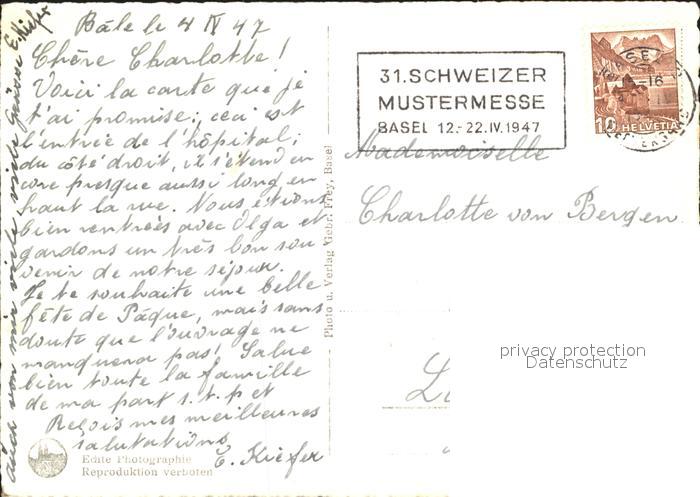 Bâle le 4 IV 47
Chère Charlotte!
Voici la carte que je
t'ai promise; ceci est
l'entrée de l'hôpital;
du côté droit, il s'étend en
core presque aussi long en
haut la rue. Nous étions
bien rentrées avec Olga et
gardons un très bon sou
venir de notre séjour.
Je te souhaite une belle
fête de Pâque, mais sans
doute que l'ouvrage ne
manquera pas! Salue
bien toute la famille
de ma part s.t.p et
Reçois mes meilleures
salutations
E. Kiefer
auch von mir viele viele Grüsse E. Kiefer
Echte Photographie
Reproduktion verboten
Photo u. Verlag Gebr. Frey, Basel
31. SCHWEIZER
MUSTERMESSE
BASEL 12.-22.IV.1947
BASEL
-16
10 HELVETIA
Mademoiselle
Charlotte von Bergen
privacy protection
Datenschutz